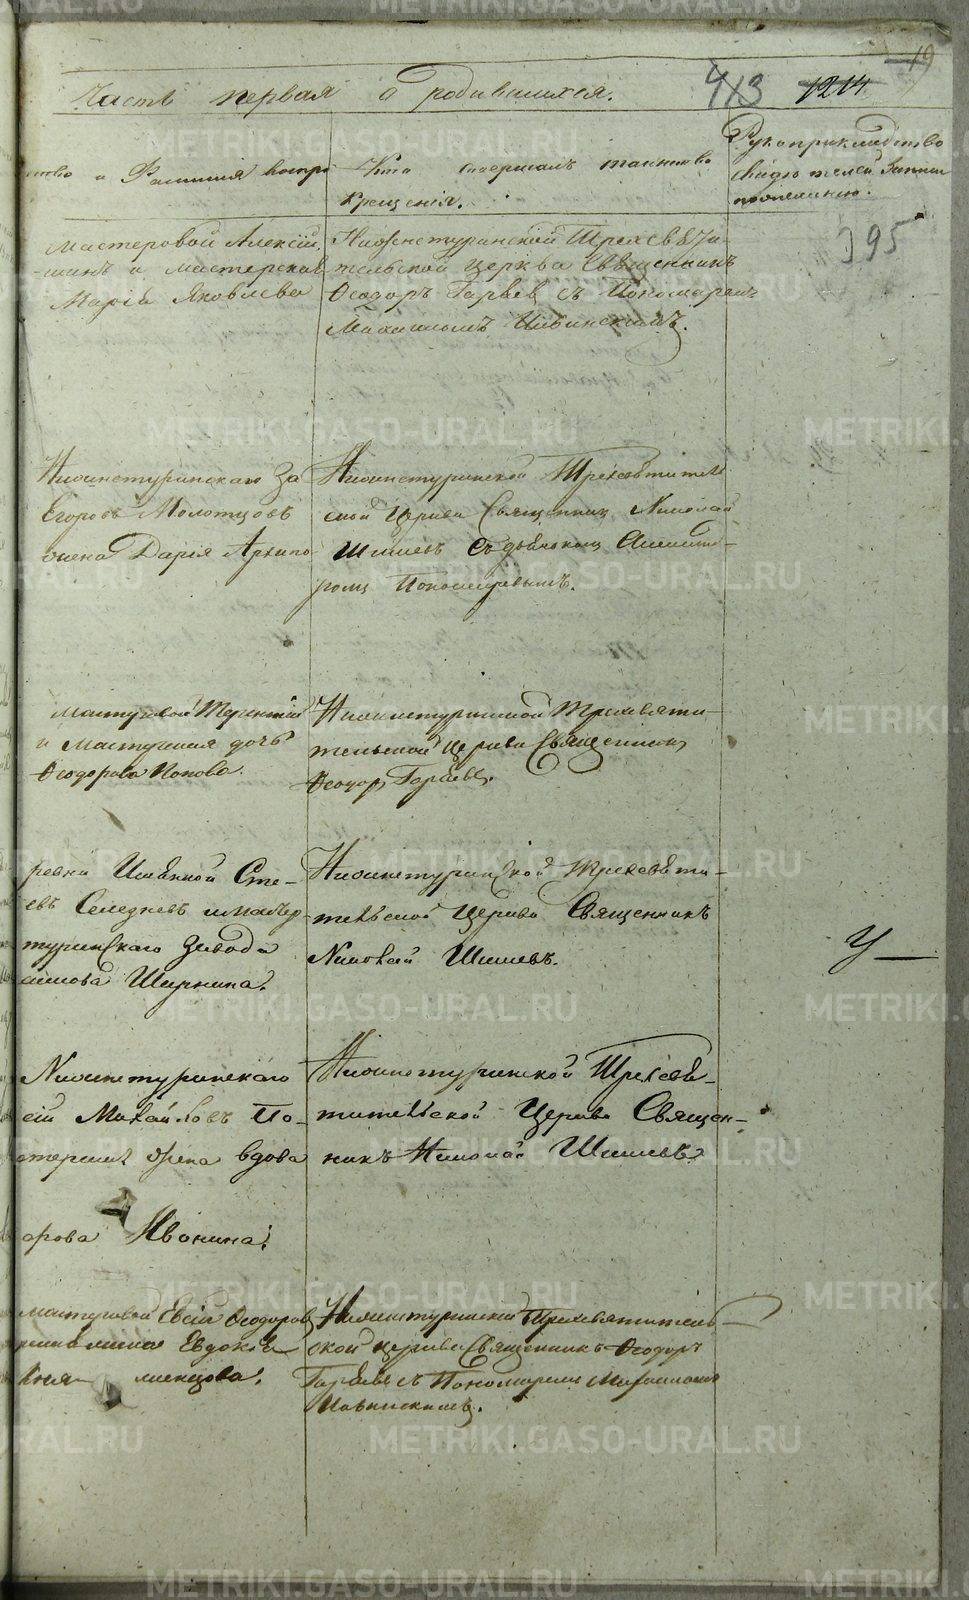 19
Часть первая о родившихся.
413 1214
ство и Фамилія воспрі
Кто совершалъ таинство
крещенія.
Рукоприкладство
свидѣтелей записи
по желанію.
мастеровой Алексій
и мастерская
Марія Яковлева
Нижнетуринской Трехсвяти-
тельской церкви Священникъ
Ѳеодоръ съ Пономаремъ
Михаиломъ
395
Нижнетуринскаго За
Егоровъ Молотцовъ
жена Дарія Архипо
Нижнетуринской Трехсвятитель
ской Церкви Священникъ Николай
Шишевъ съ дьячкомъ Алексан-
дромъ Пономаревымъ.
мастеровой Терентій
и Мастерская дочь
Ѳеодорова Попова.
Нижнетуринской Трехсвяти-
тельской Церкви Священникъ
Ѳеодоръ
ревни Сте-
евъ Селезневъ и мастер
туринскаго Завода
Ширкина.
Нижнетуринской Трехсвяти-
тельской Церкви Священникъ
Николай Шишевъ.
У
Нижнетуринскаго
сій Михайловъ По-
стерская жена вдова
орова Ивонина.
Нижнетуринской Трехсвя-
тительской Церкви Священ-
никъ Николай Шишевъ.
мастеровой Евсій Ѳеодоров
Евдокія
Нижнетуринской Трехсвятитель-
ской церкви Священникъ Ѳеодоръ
съ Пономаремъ Михаиломъ
METRIKI.GASO-URAL.RU